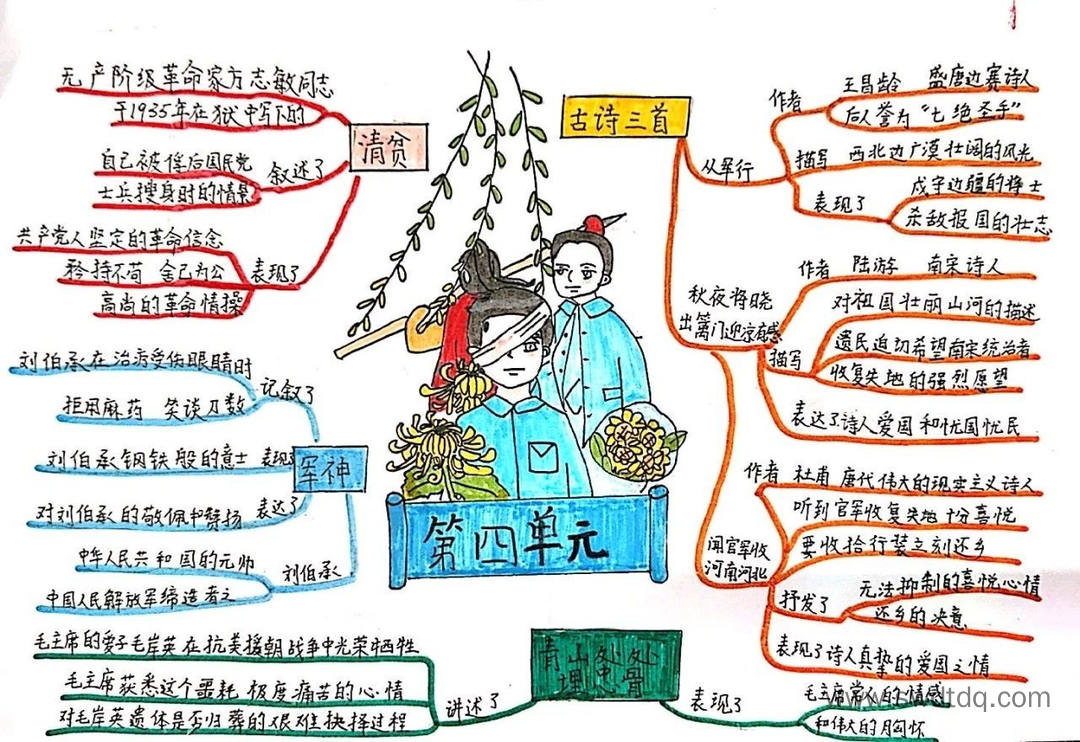 第四单元
清贫
无产阶级革命家方志敏同志
于1935年在狱中写下的
叙述了
自己被俘后国民党
士兵搜身时的情景
表现了
共产党人坚定的革命信念
矜持不苟 舍己为公
高尚的革命情操
军神
记叙了
刘伯承在治疗受伤眼睛时
拒用麻药 笑谈刀数
表现
刘伯承钢铁般的意士
表达了
对刘伯承的敬佩和赞扬
刘伯承
中华人民共和国的元帅
中国人民解放军缔造者之
青山处处
埋忠骨
讲述了
毛主席的爱子毛岸英在抗美援朝战争中光荣牺牲
毛主席获悉这个噩耗极度痛苦的心情
对毛岸英遗体是否归葬的艰难抉择过程
表现了
毛主席常人的情感
和伟大的胸怀
古诗三首
从军行
作者
王昌龄 盛唐边赛诗人
后人誉为“七绝圣手”
描写
西北边广漠壮阔的风光
表现了
戍守边疆的将士
杀敌报国的壮志
秋夜将晓
出篱门迎凉有感
作者 陆游 南宋诗人
描写
对祖国壮丽山河的描述
遗民迫切希望南宋统治者
收复失地的强烈愿望
表达了诗人爱国和忧国忧民
闻官军收
河南河北
作者 杜甫 唐代伟大的现实主义诗人
听到官军收复失地十分喜悦
要收拾行装立刻还乡
抒发了
无法抑制的喜悦心情
还乡的决意
表现了诗人真挚的爱国之情